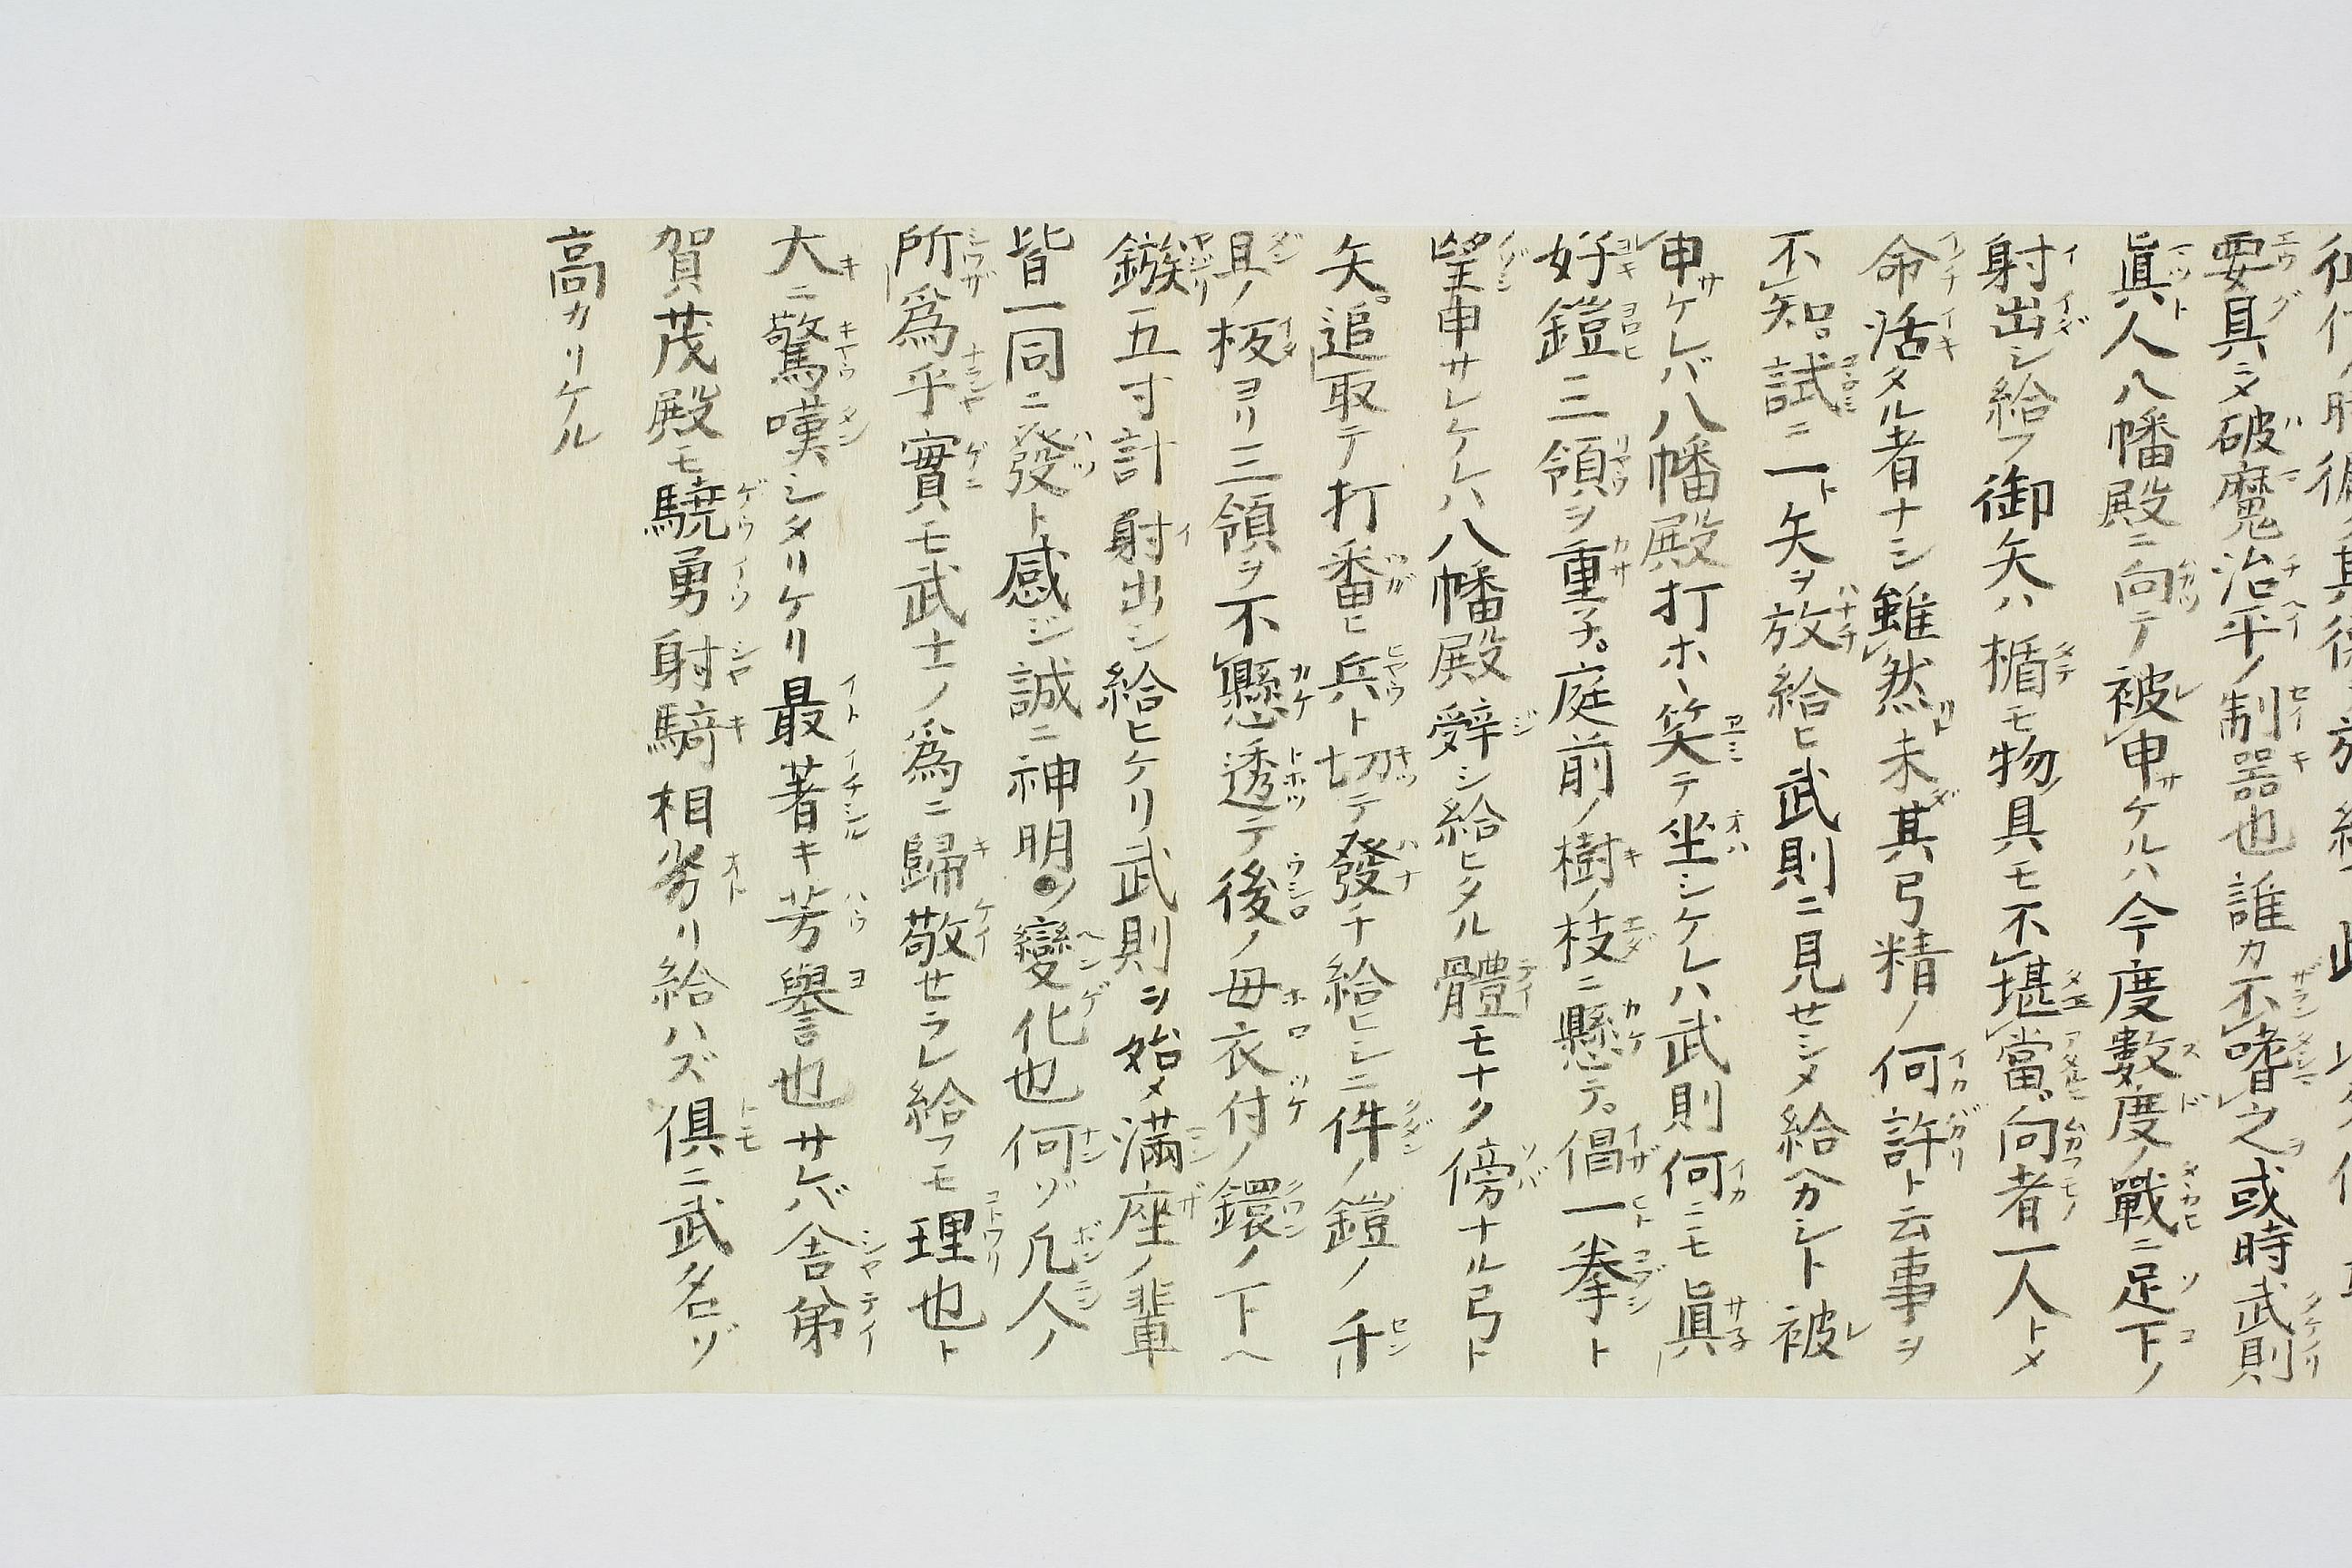 要具ニシテ破魔治平ノ制器也誰カ不嗜之或時武則
眞人八幡殿ニ向テ被申ケルハ今度數度ノ戰ニ足下ノ
射出シ給フ御矢ハ楯モ物具モ不堪當向者一人トメ
命活タル者ナシ雖然未其弓精ノ何許ト云事ヲ
不知試ニ一ト矢ヲ放給ヒ武則ニ見セシメ給ヘカシト被
申ケレバ八幡殿打ホヽ笑テ坐シケレハ武則何ニモ眞
好鎧三領ヲ重子庭前ノ樹ノ枝ニ懸テ倡一拳ト
望申サレケレハ八幡殿辞シ給ヒタル體モナク傍ナル弓ト
矢追取テ打番ヒ兵ト切テ發チ給ヒシニ件ノ鎧ノ千
具ノ板ヨリ三領ヲ不懸透テ後ノ母衣付ノ鐶ノ下ヘ
鏃五寸計射出シ給ヒケリ武則ヲ始メ満座ノ輩
皆一同ニ發ト感ジ誠ニ神明ノ變化也何ゾ凡人ノ
所爲乎實モ武士ノ爲ニ歸敬セラレ給フモ理也ト
大ニ驚嘆シタリケリ最著キ芳譽也サレバ舎弟
賀茂殿モ驍勇射騎相劣リ給ハズ俱ニ武名ゾ
高カリケル